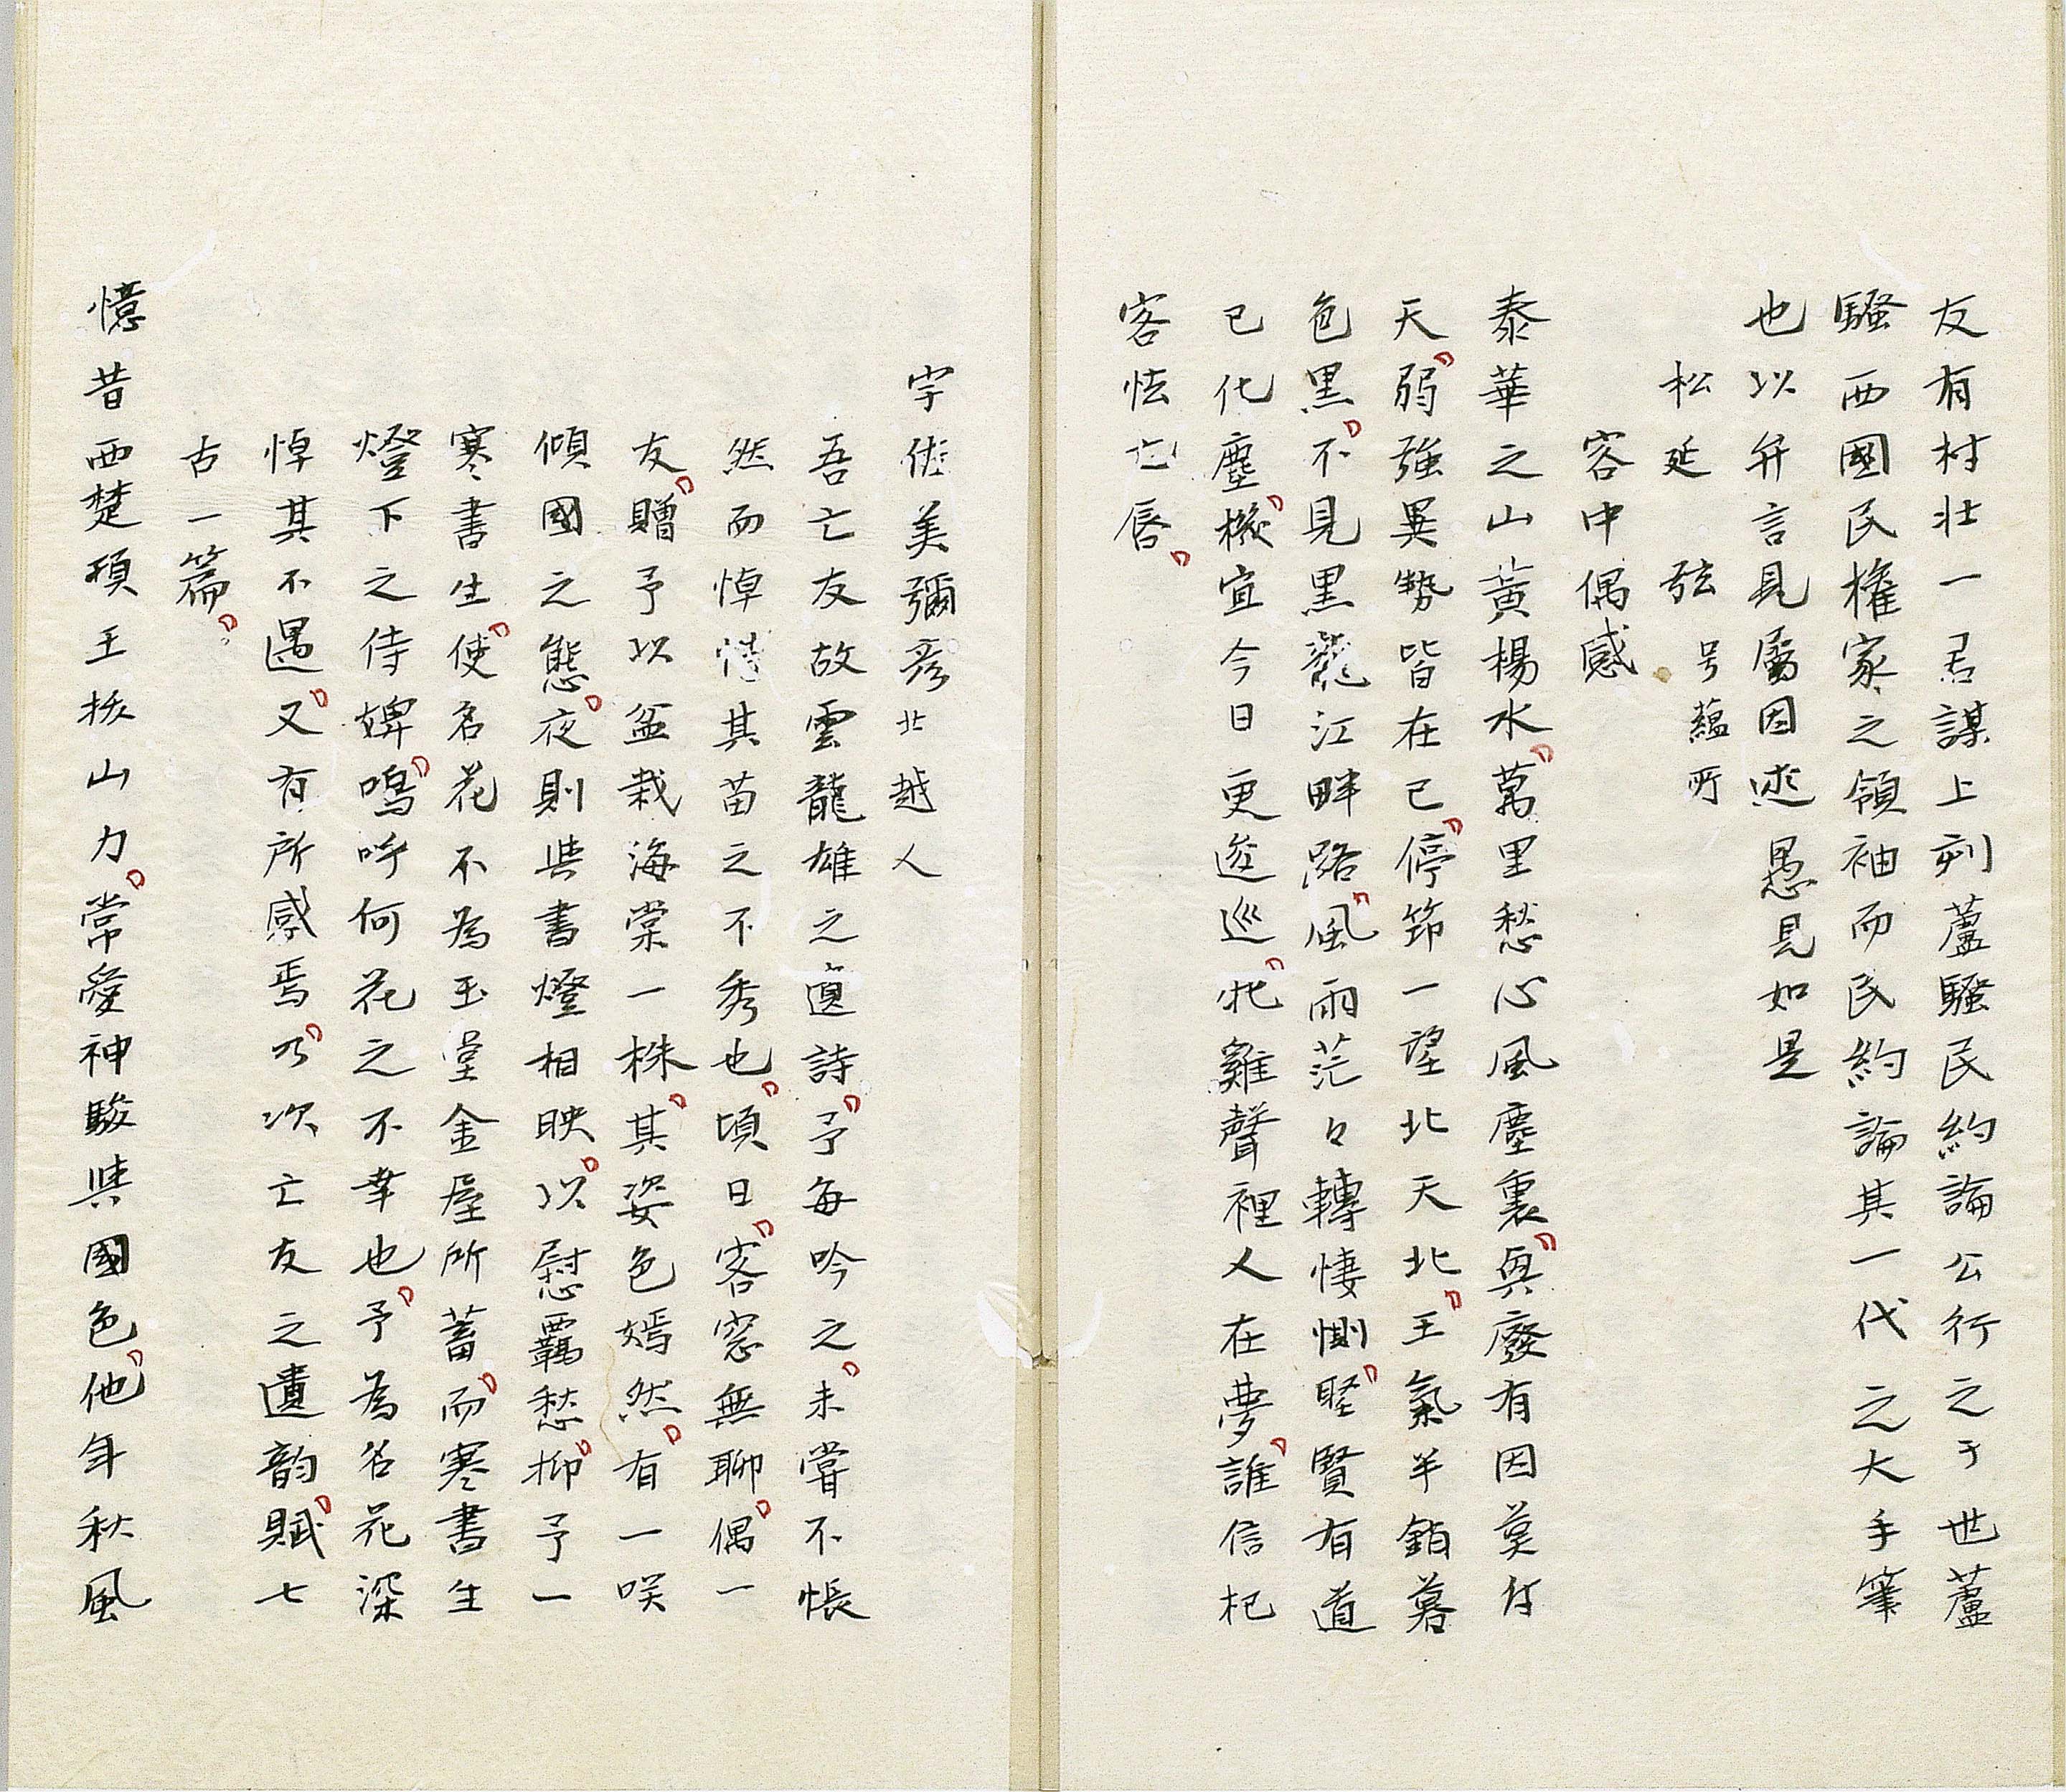 友有村壮一君謀上刻蘆騒民約論公行之于世蘆
騒西國民権家之領袖而民約論其一代之大手筆
也以弁言見属因述愚見如是
松延 弦 号蘊所
客中偶感
泰華之山黄楊水萬里愁心風塵裏興廢有因莫付
天弱強異勢皆在己停筇一望北天北王氣半銷暮
色黒不見黒龍江畔路風雨茫々轉悽惻聖賢有道
已化塵機宜今日更逡巡牝雞聲裡人在夢誰信杞
客怯亡唇
宇佐美彌彦北越人
吾亡友故雲龍雄之遺詩予毎吟之未嘗不悵
然而悼惜其苗之不秀也頃日客窓無聊偶一
友贈予以盆栽海棠一株其姿色嫣然有一咲
傾國之態夜則与書燈相映以慰羈愁抑予一
寒書生使名花不為玉堂金屋所蓄而寒書生
燈下之侍婢嗚呼何花之不幸也予為名花深
悼其不遇又有所感焉乃次亡友之遺韵賦七
古一篇
憶昔西楚項王抜山力常愛神駿與國色他年秋風